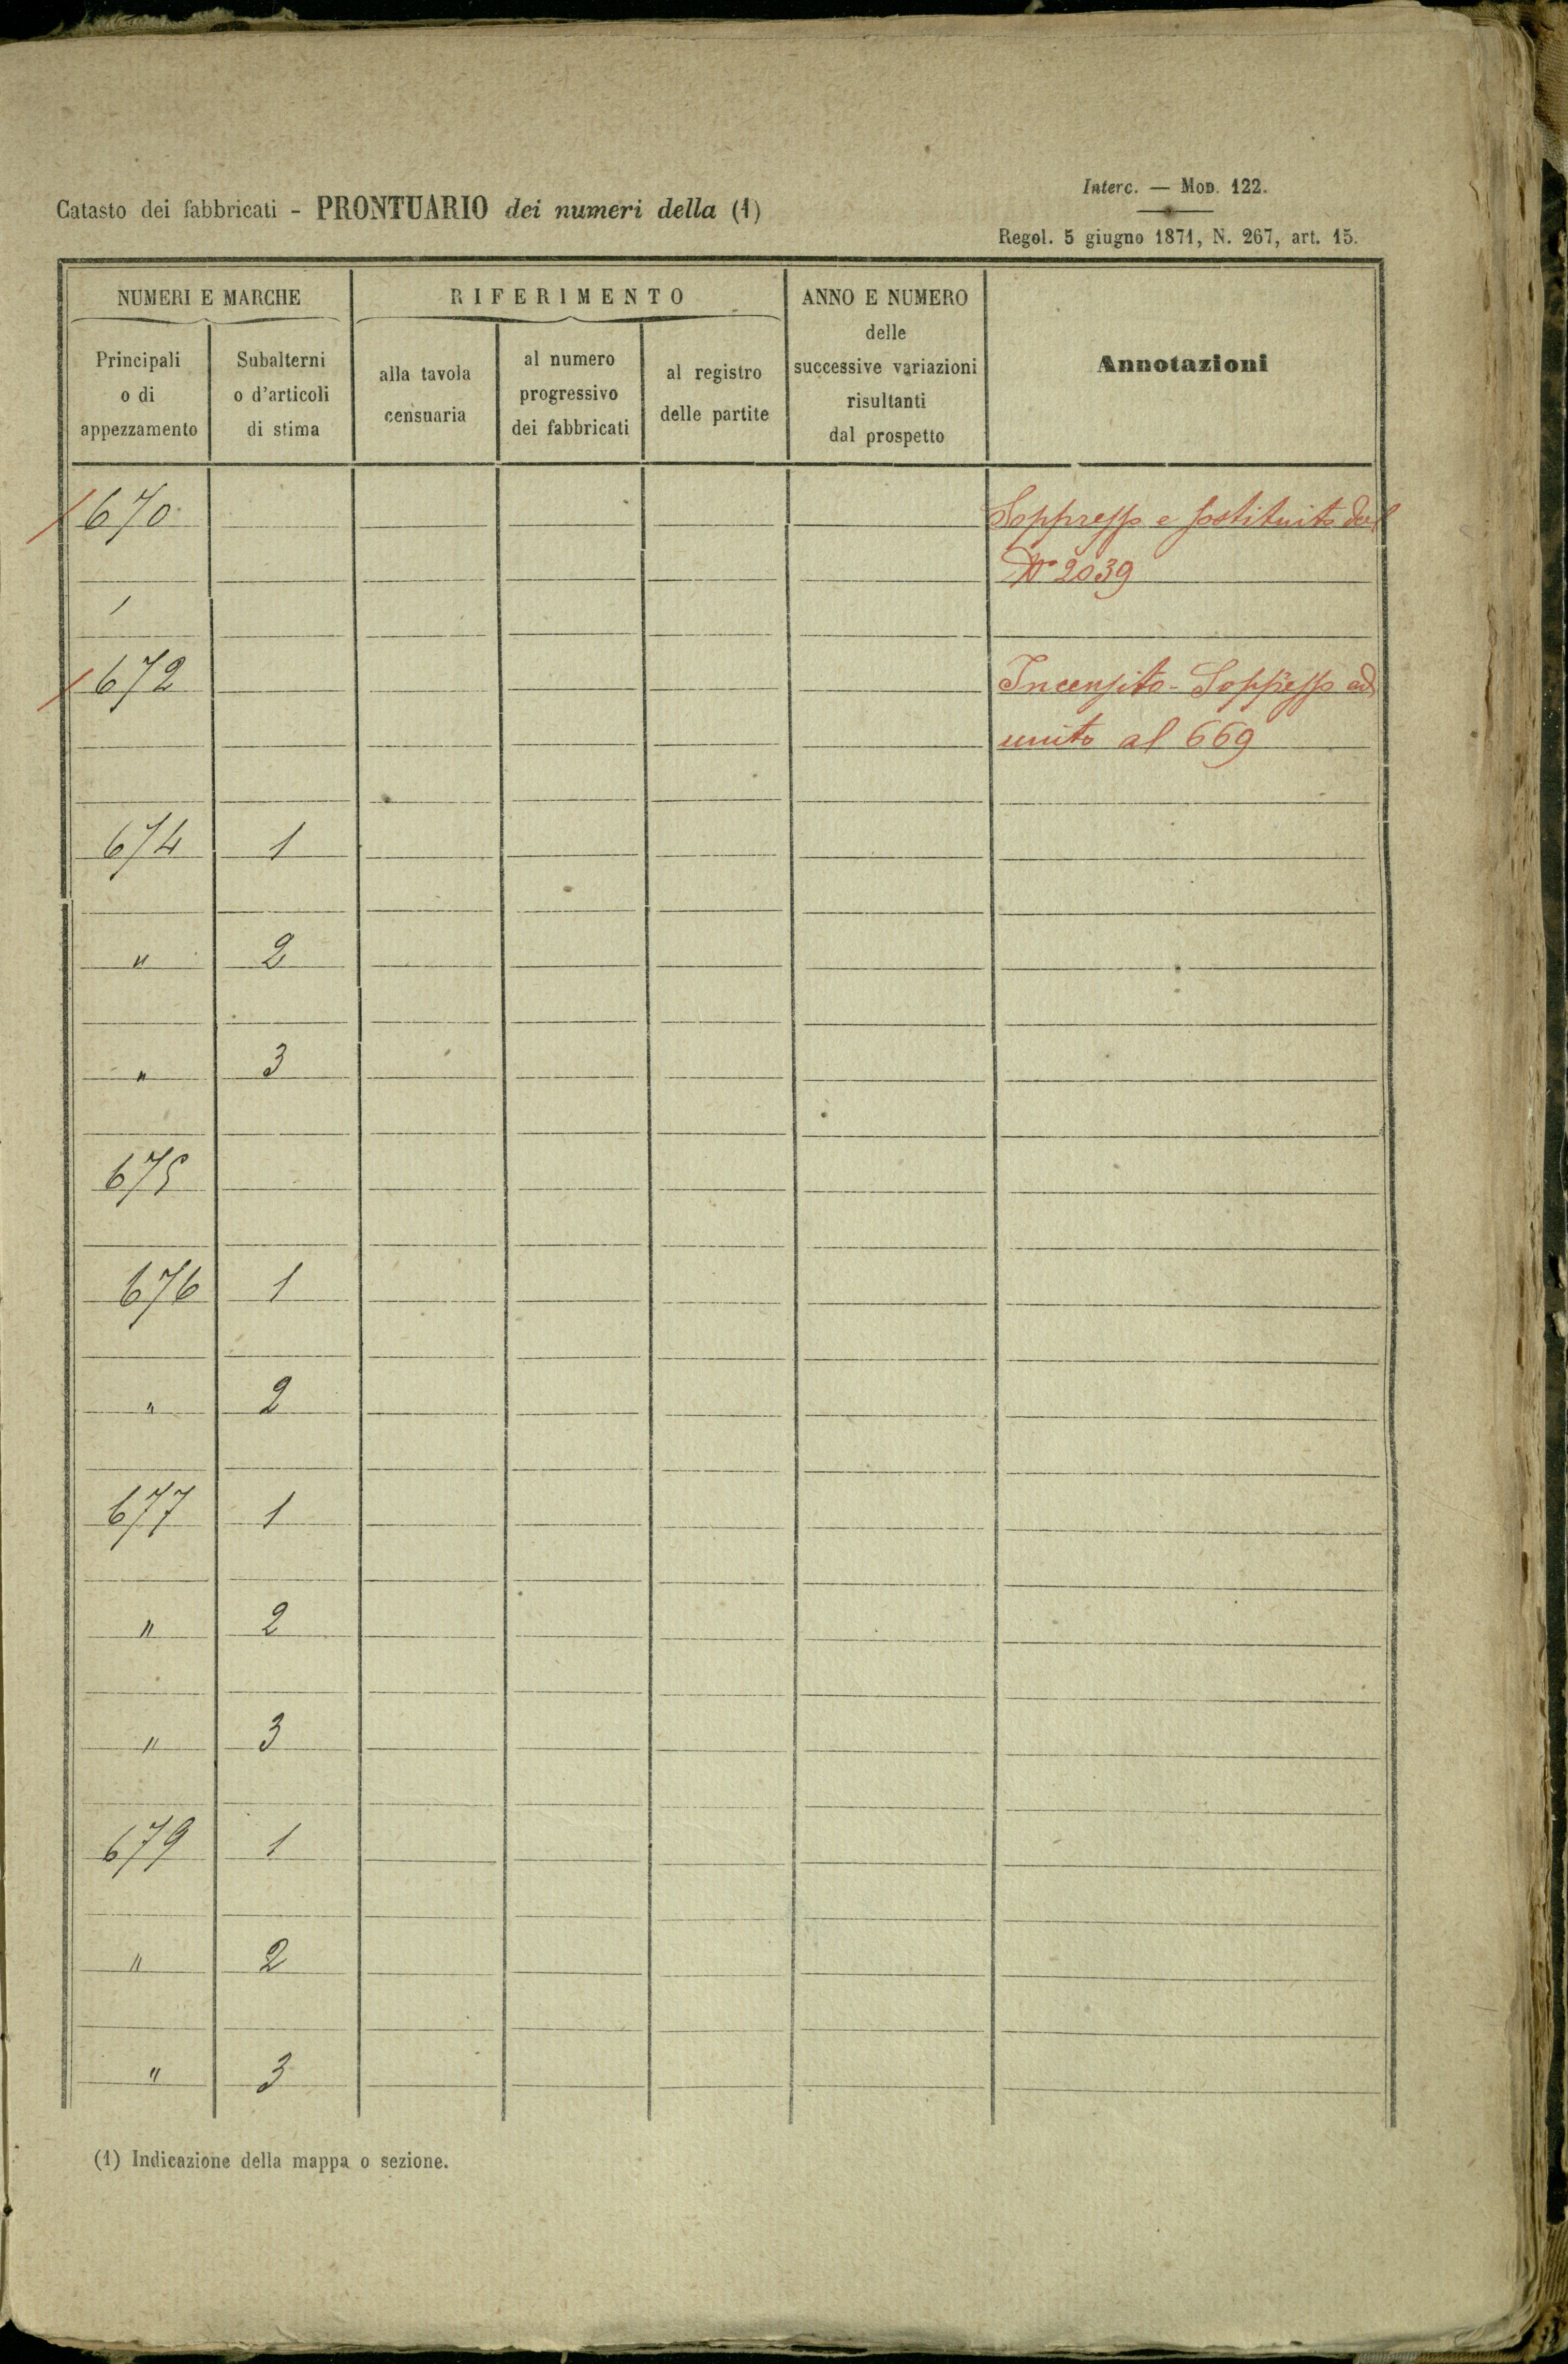 Interc. — Mod. 122.
Catasto dei fabbricati - PRONTUARIO dei numeri della (1)
Regol. 5 giugno 1871, N. 267, art. 15.
NUMERI E MARCHE
RIFERIMENTO
ANNO E NUMERO
delle
successive variazioni
risultanti
dal prospetto
Annotazioni
Principali
o di
appezzamento
Subalterni
o d'articoli
di stima
alla tavola
censuaria
al numero
progressivo
dei fabbricati
al registro
delle partite
670 Soppresso e sostituito dal
N° 2039
672 Incensito - Soppresso ed
unito al 669
674 1
" 2
" 3
675
676 1
" 2
677 1
" 2
" 3
679 1
" 2
" 3
(1) Indicazione della mappa o sezione.